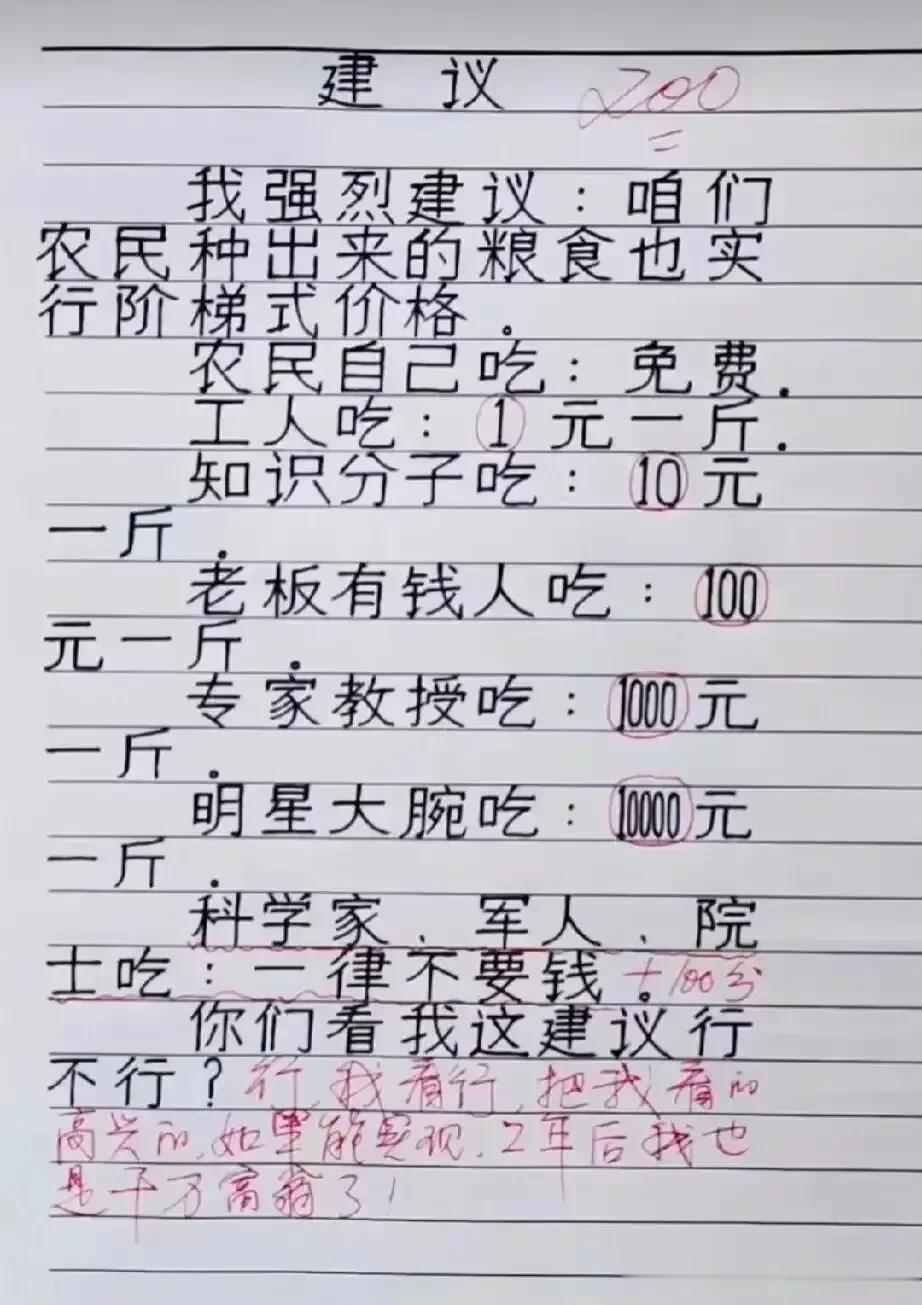 建 议 200
我强烈建议：咱们
农民种出来的粮食也实
行阶梯式价格．
农民自己吃：免费．
工人吃：1元一斤．
知识分子吃：10元
一斤．
老板有钱人吃：100
元一斤．
专家教授吃：1000元
一斤．
明星大腕吃：10000元
一斤．
科学家、军人、院
士吃：一律不要钱．+100分
你们看我这建议行
不行？行，我看行，把我看的
高兴的，如果能实现，2年后我也
是千万富翁了！